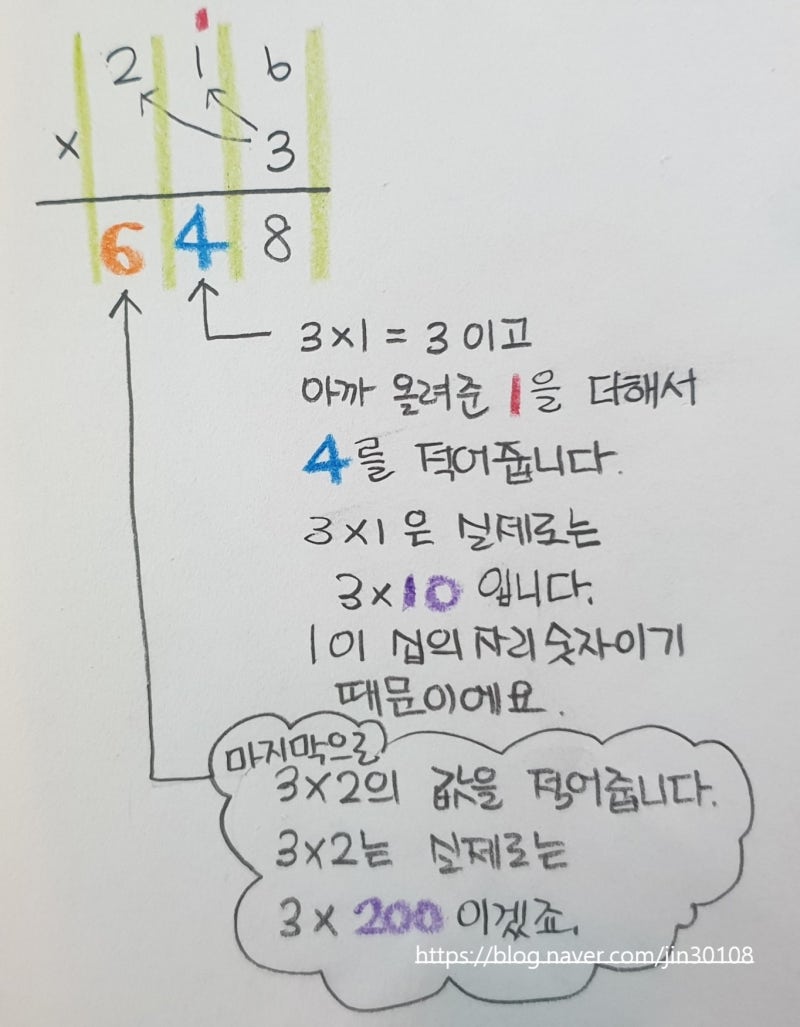 1
2 1 6
× 3
6 4 8
3×1 = 3 이고
아까 올려준 1을 더해서
4를 적어줍니다.
3×1 은 실제로는
3×10 입니다.
1이 십의 자리 숫자이기
때문이에요.
마지막으로
3×2의 값을 적어줍니다.
3×2는 실제로는
3 × 200 이겠죠.
https://blog.naver.com/jin30108